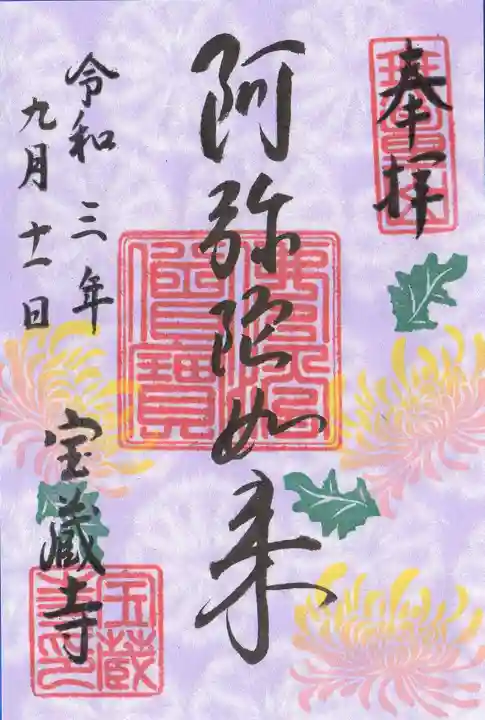 奉拝
阿弥陀如来
令和三年
九月十一日
宝蔵寺
佛法僧寶